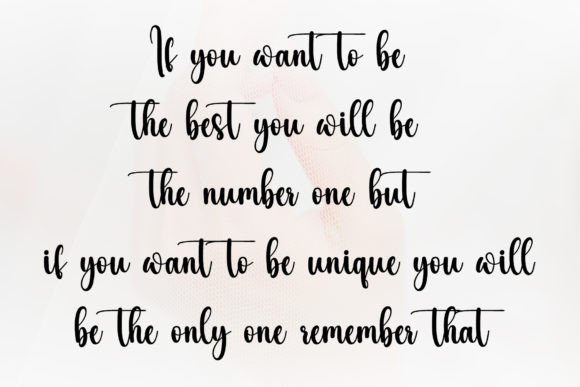 If you want to be
the best you will be
the number one but
if you want to be unique you will
be the only one remember that